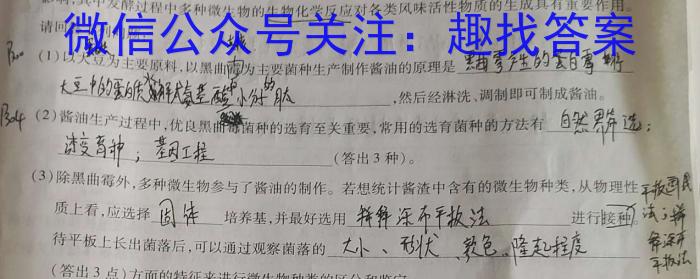 影响，其中发酵过程中多种微生物的生物化学反应对各类风味活性物质的生成具有重要作用。
请回
微信公众号关注：趣找答案
(1)以大豆为主要原料，以黑曲霉为主要菌种生产制作酱油的原理是 黑曲霉产生的蛋白酶将
大豆中的蛋白质分解成氨基酸 小分子的肽 ，然后经淋洗、调制即可制成酱油。
(2)酱油生产过程中，优良黑曲霉菌种的选育至关重要，常用的选育菌种的方法有 自然界筛选；
诱变育种；基因工程 （答出3种）。
(3)除黑曲霉外，多种微生物参与了酱油的制作。若想统计酱渣中含有的微生物种类，从物理性
质上看，应选择 固体 培养基，并最好选用 稀释涂布平板法 进行接种。
待平板上长出菌落后，可以通过观察菌落的 大小、形状、颜色、隆起程度
（答出3点）方面的特征来进行微生物种类的区分和鉴定
平板划线
法；稀
释涂布
平板法